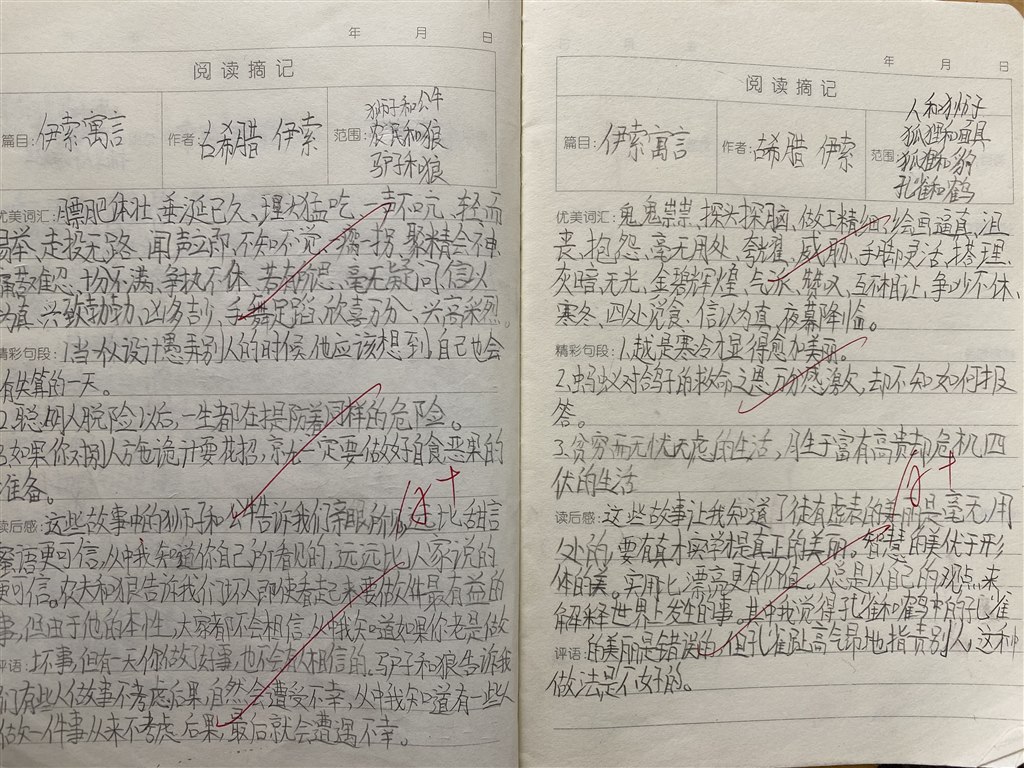 年 月 日
阅读摘记
篇目：伊索寓言
作者：古希腊 伊索
范围：狮子和公牛
农民和狼
驴子和狼
优美词汇：膘肥体壮、垂涎已久、理火猛吃、一声不吭、轻而
易举、走投无路、闻声立即、不知不觉、一瘸一拐、聚精会神
痛苦难忍、十分不满、争执不休、苦苦、毫无疑问、信以
为真、兴致勃勃、凶多吉少、手舞足蹈、欣喜万分、兴高采烈。
精彩句段：1.当一个人设计愚弄别人的时候，他应该想到，自己也会
有失算的一天。
2.聪明人脱险以后，一生都在提防着同样的危险。
3.如果你对别人方施诡计耍花招，一定要做好自食恶果的
准备。
读后感：这些故事中的狮子和公牛告诉我们亲眼所 比甜言
蜜语更可信，从中我知道你自己所看见的，远远比人家说的
更可信。农夫和狼告诉我们坏人即使看起来要做件最有益的
事，但由于他的本性，大家都不会相信，从中我知道如果你老是做
评语：坏事，但有一天你做了好事，也不会有人相信的。驴子和狼告诉我
们有些人做故事不考虑后果，自然会遭受不幸，从中我知道有一些人
做一件事从来不考虑后果，最后就会遭遇不幸。
年 月 日
阅读摘记
篇目：伊索寓言
作者：古希腊 伊索
范围：人和狮子
狐狸和面具
狐狸和豹
孔雀和鹤
优美词汇：鬼鬼祟祟、探头探脑、做工精细、绘画逼真、沮
丧、抱怨、毫无用处、夸耀、威胁、手脚灵活、搭理、
灰暗无光、金碧辉煌、气派、赞叹、互不相让、争吵不休、
寒冬、四处觅食、信以为真、夜幕降临。
精彩句段：1.越是寒冷才显得愈加美丽。
2.蚂蚁对鸽子的救命之恩万分感激，却不知如何报
答。
3.贫穷而无忧无虑的生活，胜于富有高贵却危机四
伏的生活
读后感：这些故事让我知道了徒有虚表的美丽是毫无用
处的，要有真才实学才是真正的美丽。智慧的美优于形
体的美。实用比漂亮更有价值。人总是以自己的观点来
解释世界上发生的事。其中我觉得孔雀和鹤中的孔雀
评语：的美丽是错误的，但孔雀趾高气昂地指责别人，这种
做法是不好的。